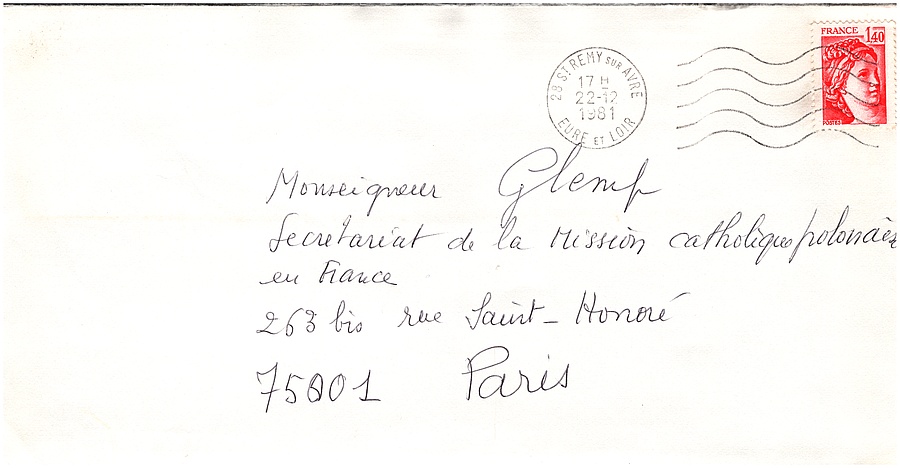 FRANCE 1,40
POSTES
28 ST REMY SUR AVRE
17 H
22-12
1981
EURE ET LOIR
Monseigneur Glemp
Secretariat de la Mission catholique polonaise
en France
263 bis rue Saint-Honoré
75001 Paris